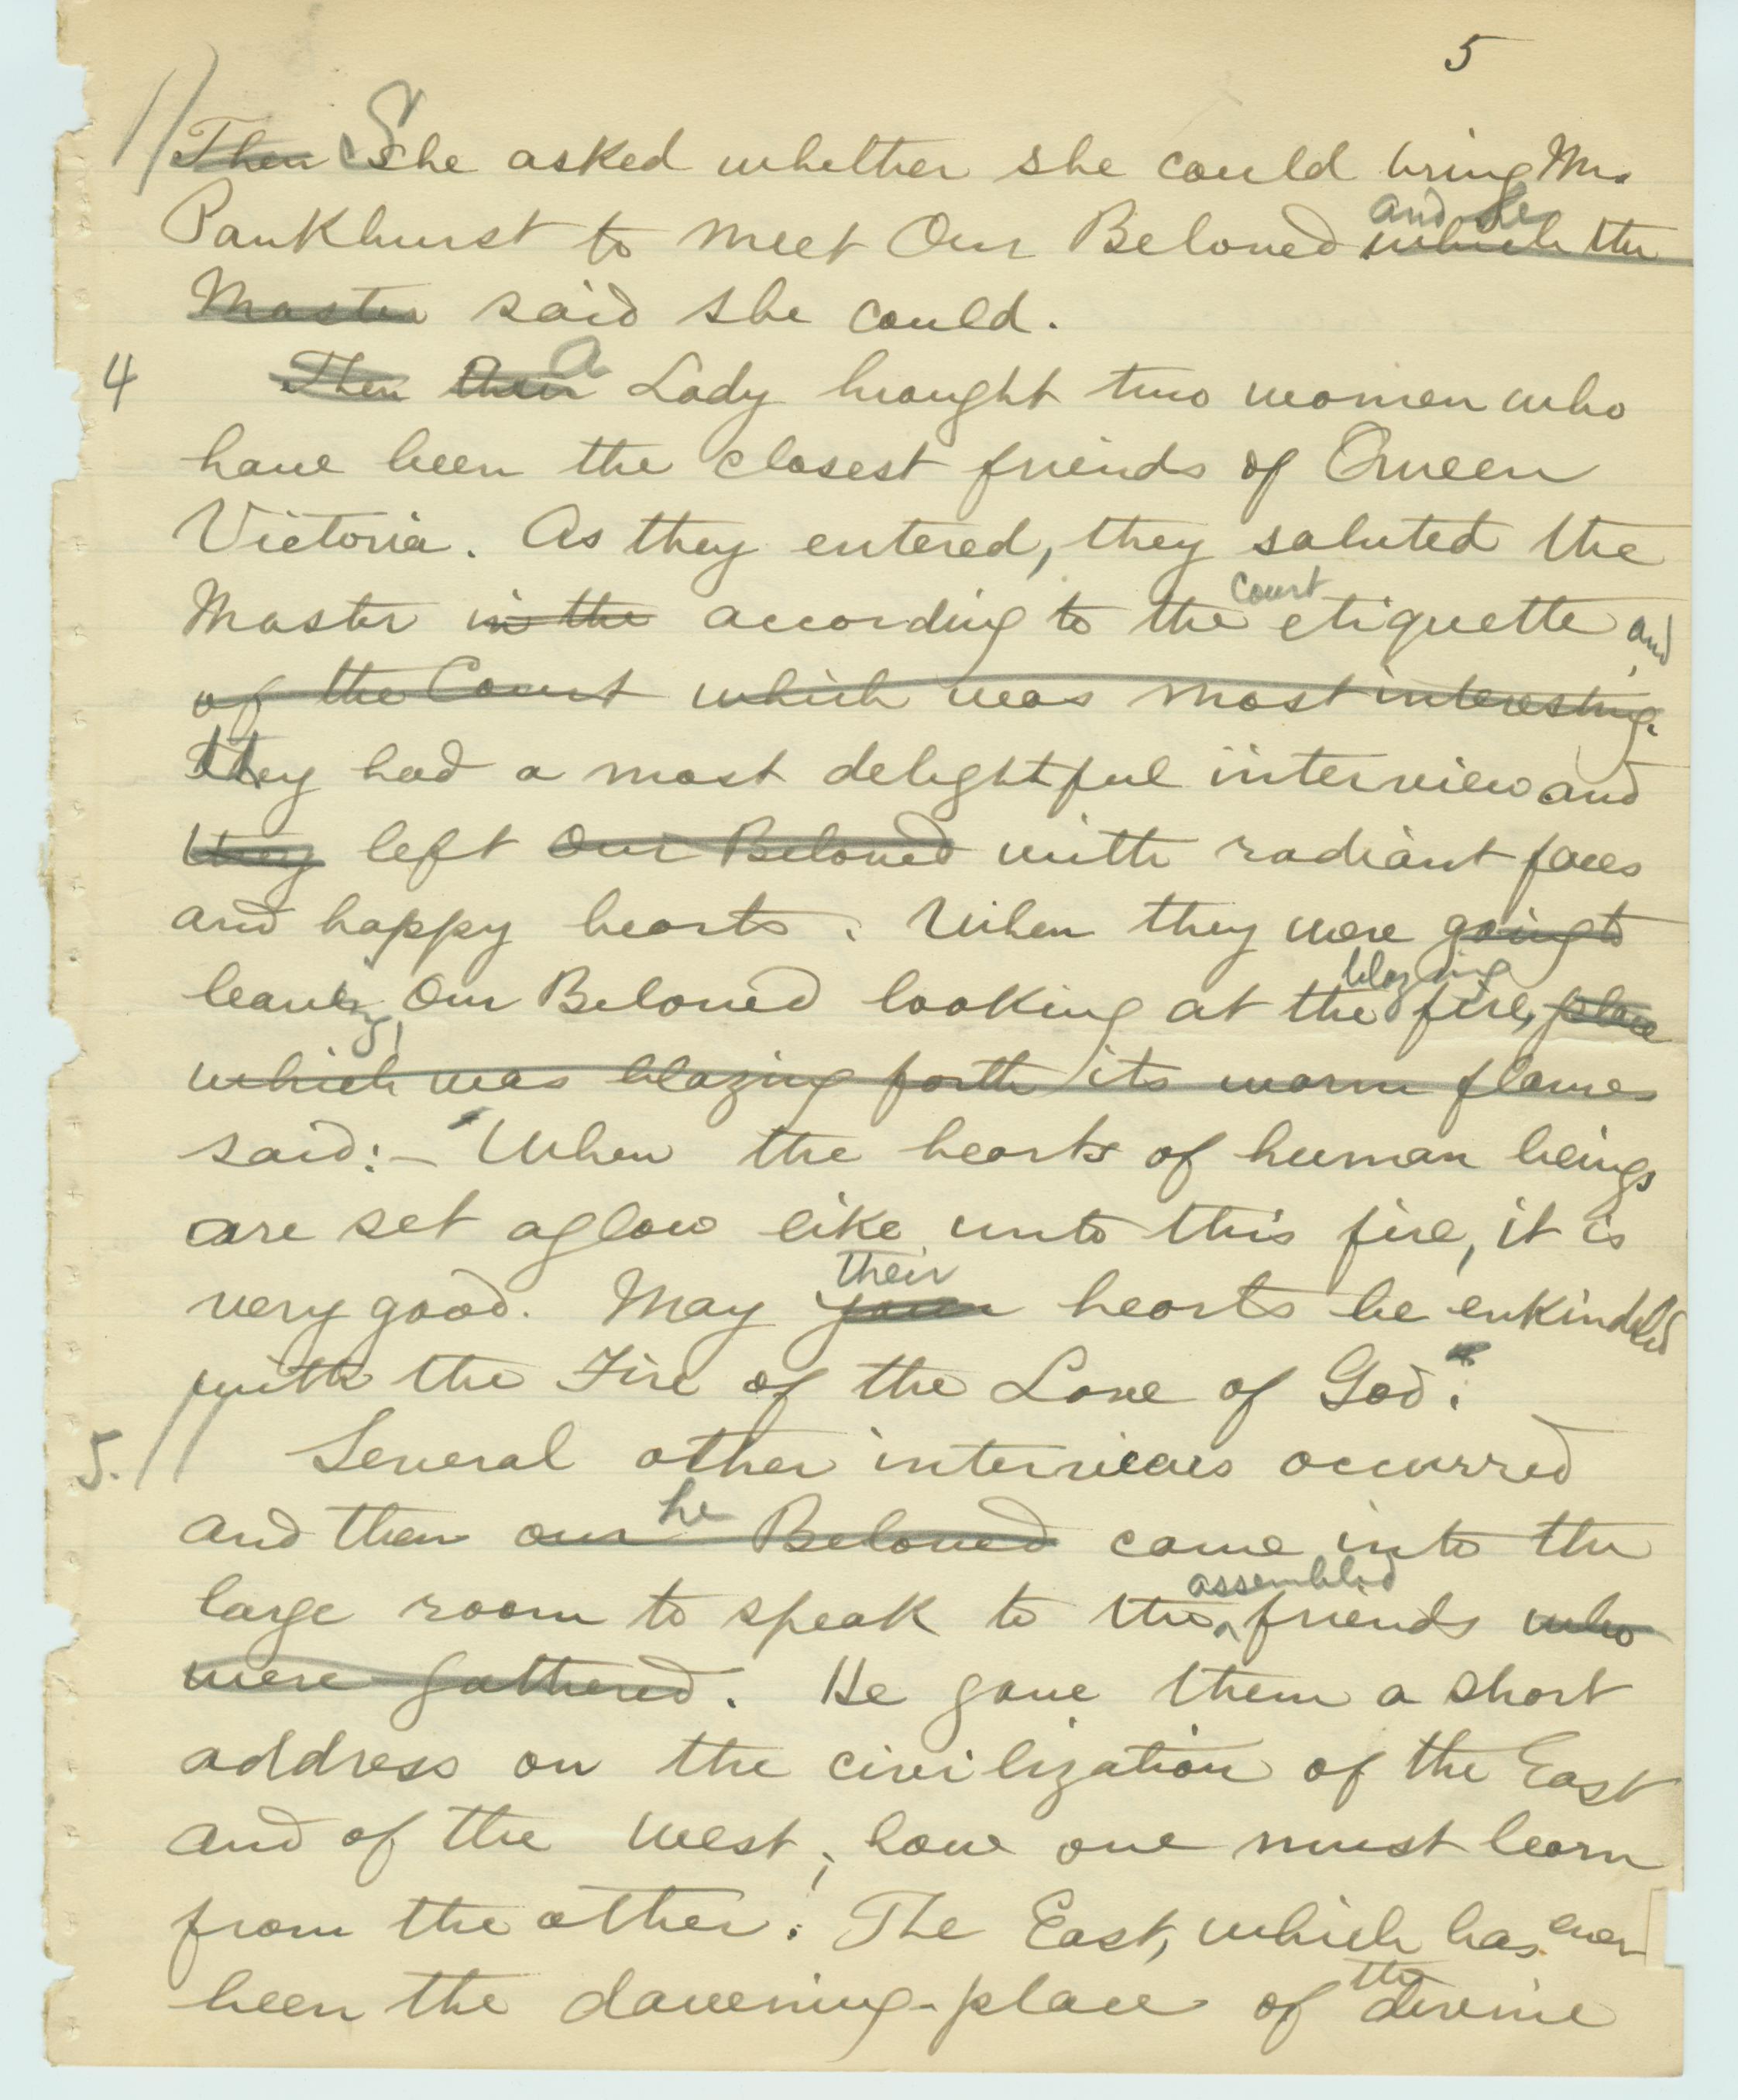 5
Then She asked whether she could bring Mrs.
and He
Pankhurst to meet Our Beloved which the
Master said she could.
A
4 Then Lady brought two women who
have been the closest friends of Queen
Victoria. As they entered, they saluted the
court
Master in the according to the etiquette and
of the Court which was most interesting.
They had a most delightful interview and
they left Our Beloved with radiant faces
and happy hearts. When they were going to
blazing
leaving, Our Beloved looking at the fire, place
which was blazing forth its warm flames
said:- "When the hearts of human beings
are set aglow like unto this fire, it is
their
very good. May your hearts be enkindled
with the Fire of the Love of God."
5. Several other interviews occurred
he
and then our Beloved came into the
assembled
large room to speak to the friends who
were gathered. He gave them a short
address on the civilization of the East
and of the West; how one must learn
from the other: The East, which has ever
the
been the dawning-place of divine